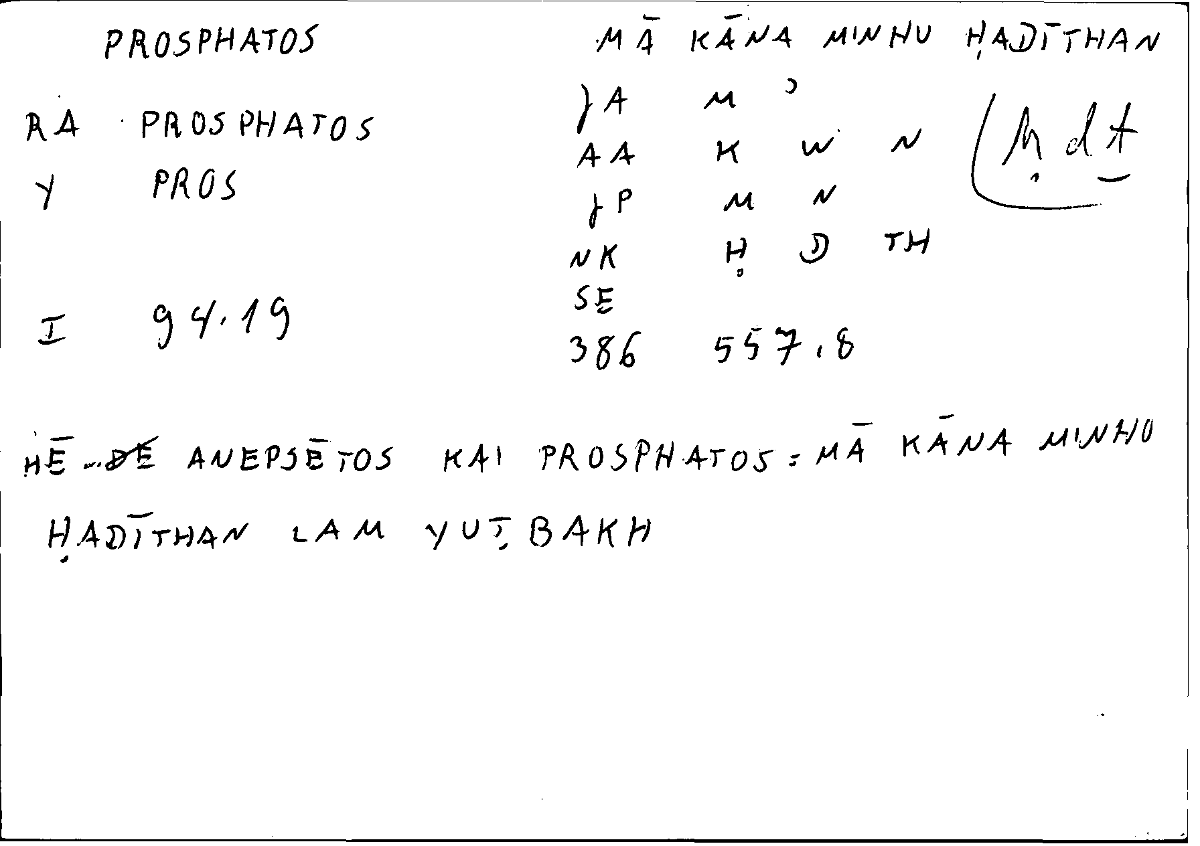 PROSPHATOS MĀ KĀNA MINHU ḤADĪTHAN
RA PROSPHATOS JA M ʾ
Y PROS AA K W N
JP M N
NK Ḥ D TH
SE
I 94.19 386 557.8
ḥdṯ
HĒ ... ANEPSĒTOS KAI PROSPHATOS = MĀ KĀNA MINHU
ḤADĪTHAN LAM YUṬBAKH